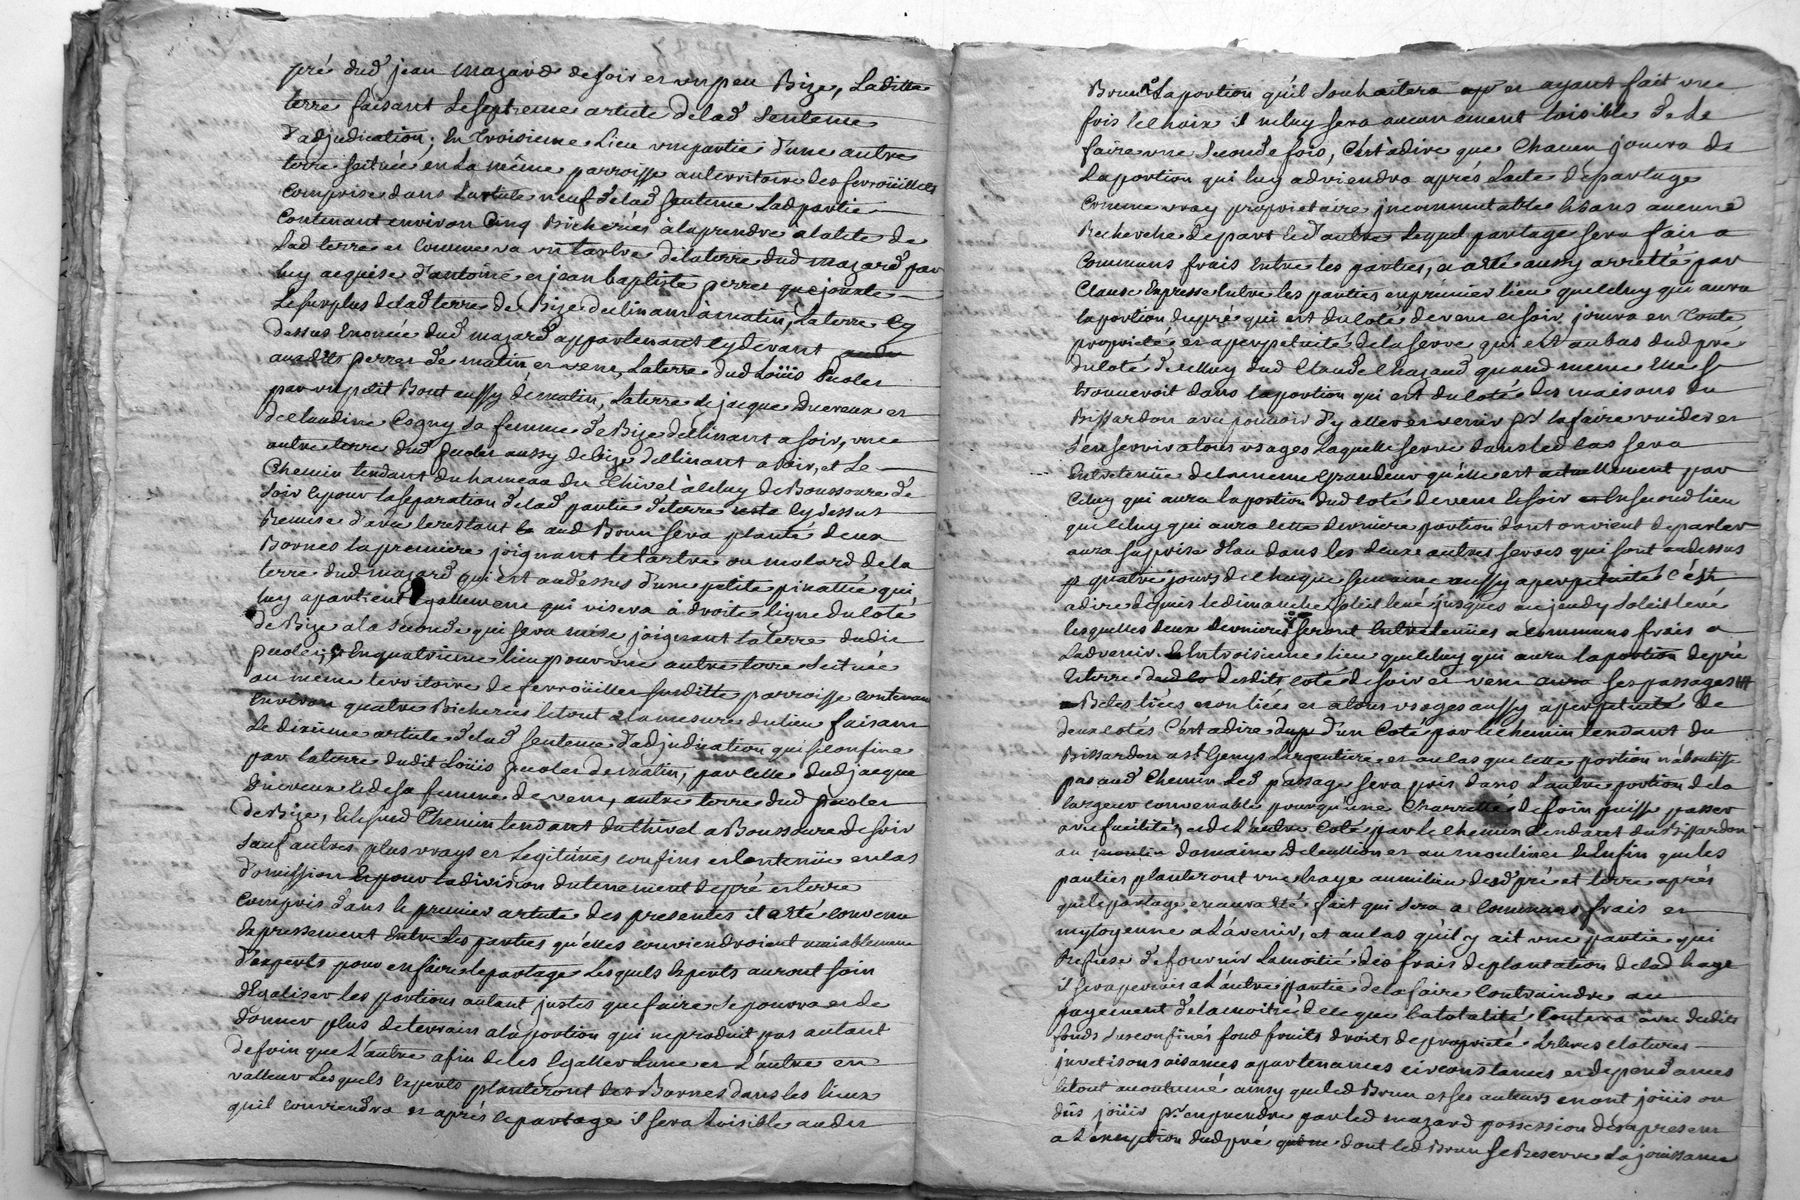 pré dud' jean mazard de soir et un peu Bize, Laditte
terre faisant le septieme article delad' sentence
d'adjudication; En troisieme Lieu une partie d'une autre
terre scituée en La même parroisse au territoire des ferroüilles
comprise dans L'article neuf delad' sentence Lad' partie
contenant environ Cinq Bicherées à la prendre à la cîte de
lad' terre et comme va un tartre de la terre dud' mazard par
luy acquise d'antoine et jean baptiste perret que jouxte
Le surplus delad' terre de Bize declinant à matin, La terre cy
dessus Enoncée dud' mazard appartenant cy devant
auxdits perret de matin et vent, La terre dud' Loüis pecolet
par un petit Bout aussy de matin, La terre de jacque Ducreux et
de claudine Cogny sa femme de Bize declinant a soir, une
autre terre dud' pecolet aussy de bize declinant a soir, et Le
Chemin tendant du hameau du Thivel à celuy de Boussoure de
soir Et pour la separation delad' partie de terre cy dessus
Remise d'avec le restant aud' Brun sera planté deux
Bornes la premiere joignant le tartre ou molard de la
terre dud' mazard qui est au dessus d'une petite pinattée qui
luy apartient Egallement qui visera à droite ligne du coté
de Bize a la seconde qui sera mise joignant la terre dudit
pecolet; Enquatrieme lieu pour une autre terre scituée
au même territoire de ferroüilles susditte parroisse contenant
Environ quatre Bicherées le tout à la mesure du lieu faisant
Le dixième article delad' sentence d'adjudication qui se confine
par la terre dudit Loüis pecolet de matin, par celle dud' jacque
Ducreux et de sa femme de vent, autre terre dud' pecolet
de Bize, Et le sud' Chemin tendant du thivel a Boussoure de soir
sauf autres plus vrays et Legitimes confins et contenüe en cas
d'omission Et pour la division du tenement de pré et terre
compris dans le premier article des presentes il a eté convenu
Expressement Entre les parties qu'elles conviendroient amiablement
d'experts pour en faire le partage Lesquels Experts auront soin
d'Egaliser les portions autant justes que faire se pourra et de
donner plus de terrain a la portion qui ne produit pas autant
de foin que L'autre afin de les Egaller L'une et L'autre en
valleur Lesquels Experts planteront des Bornes dans les lieux
qu'il conviendra et après le partage il sera Loisible audit
Brun la portion qu'il souhaitera et en ayant fait une
fois le choix il ne luy sera aucunement loisible de le
faire une seconde fois, C'est à dire que Chacun jouira de
La portion qui luy adviendra aprés L'acte de partage
Comme vray proprietaire incommutable et sans aucune
Recherche de part et d'autre Lequel partage sera fait a
Communs frais Entre les parties, a eté aussy arretté par
Clause Expresse Entre les parties en premier lieu que celuy qui aura
la portion du pré qui est du coté de vent et soir jouira en toute
proprieté et a perpetuité de la serve qui est au bas dud' pré
du coté de celluy dud' Claude Chazaud quand meme Elle se
trouveroit dans la portion qui est du coté des maisons du
Bissardon avec pouvoir d'y aller et venir pr la faire vuider et
s'en servir a tous usages Laquelle serve dans led' cas sera
Entretenüe de la meme Grandeur qu'elle est actuellement par
Celuy qui aura la portion dud' coté de vent et soir En second lieu
que celuy qui aura cette derniere portion dont on vient de parler
aura sa prise d'Eau dans les deux autres serves qui sont au dessus
quatre jours de chaque semaine aussy a perpetuité c'est
adire depuis le dimanche soleil levé jusques au jeudy soleil levé
lesquelles deux dernieres seront Entretenües a communs frais a
L'advenir. Entroisieme lieu que celuy qui aura la portion de pré
et terre desdits coté de soir et vent aura ses passages
Betes liées et non liées et a tous usages aussy a perpetuité de
deux cotés C'est adire d'un Coté par le chemin tendant du
Bissardon a st Genys L'argentiere et au cas que cette portion n'aboutisse
pas aud' Chemin Led' passage sera pris dans L'autre portion de la
largeur convenable pour qu'une Charrette de foin puisse passer
avec facilité, et de L'autre Coté par le chemin tendant du Bissardon
au domaine de et au moulin et Enfin que les
parties planteront une haye au milieu desd' pré et terre aprés
que le partage en aura eté fait qui sera a Communs frais et
mytoyenne a L'avenir, et au cas qu'il y ait une partie qui
Refuse de fournir La moitié des frais de plantation delad' haye
il sera permis a L'autre partie de la faire Contraindre au
payement de la moitié de ce que la totalité Coutera avec desdits
fonds susconfinés fond fruits droits de proprieté arbres clotures
jonctions aisances apartenances circonstances et dependances
le tout accoutumé ainsy que led' Brun et ses auteurs en ont joüis ou
dûs joüir pr en prendre par led' mazard possession dés apresent
a L'exception dud' pré dont led' Brun se Reserve La joüissance